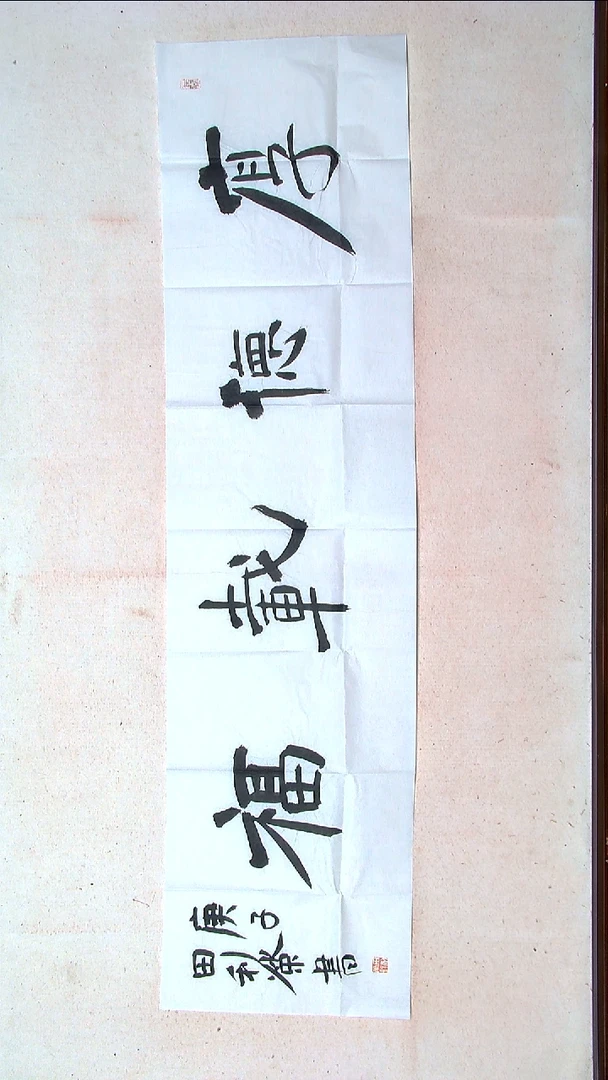 厚德載福
庚子
田利書